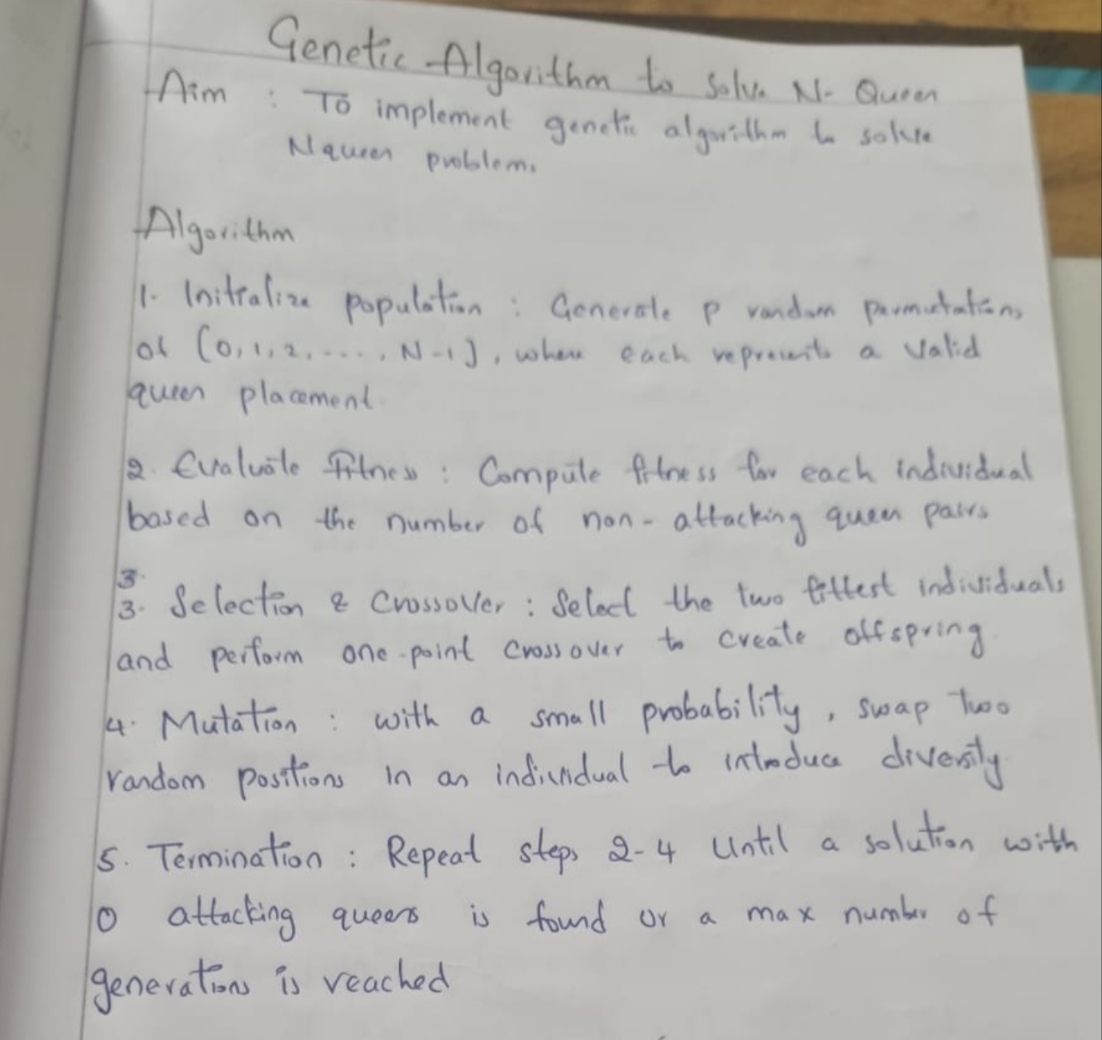 Genetic Algorithm to Solve N- Queen
Aim : To implement genetic algorithm to solve
N queen problem.
Algorithm
1. Initialize population : Generate P random permutations
of [0, 1, 2, ...., N-1], where each represents a valid
queen placement.
2. Evaluate Fitness : Compute fitness for each individual
based on the number of non-attacking queen pairs
3.
3. Selection & Crossover : Select the two fittest individuals
and perform one-point crossover to create offspring.
4. Mutation : with a small probability, swap two
random positions in an individual to introduce diversity.
5. Termination : Repeat steps 2-4 Until a solution with
0 attacking queens is found or a max number of
generations is reached